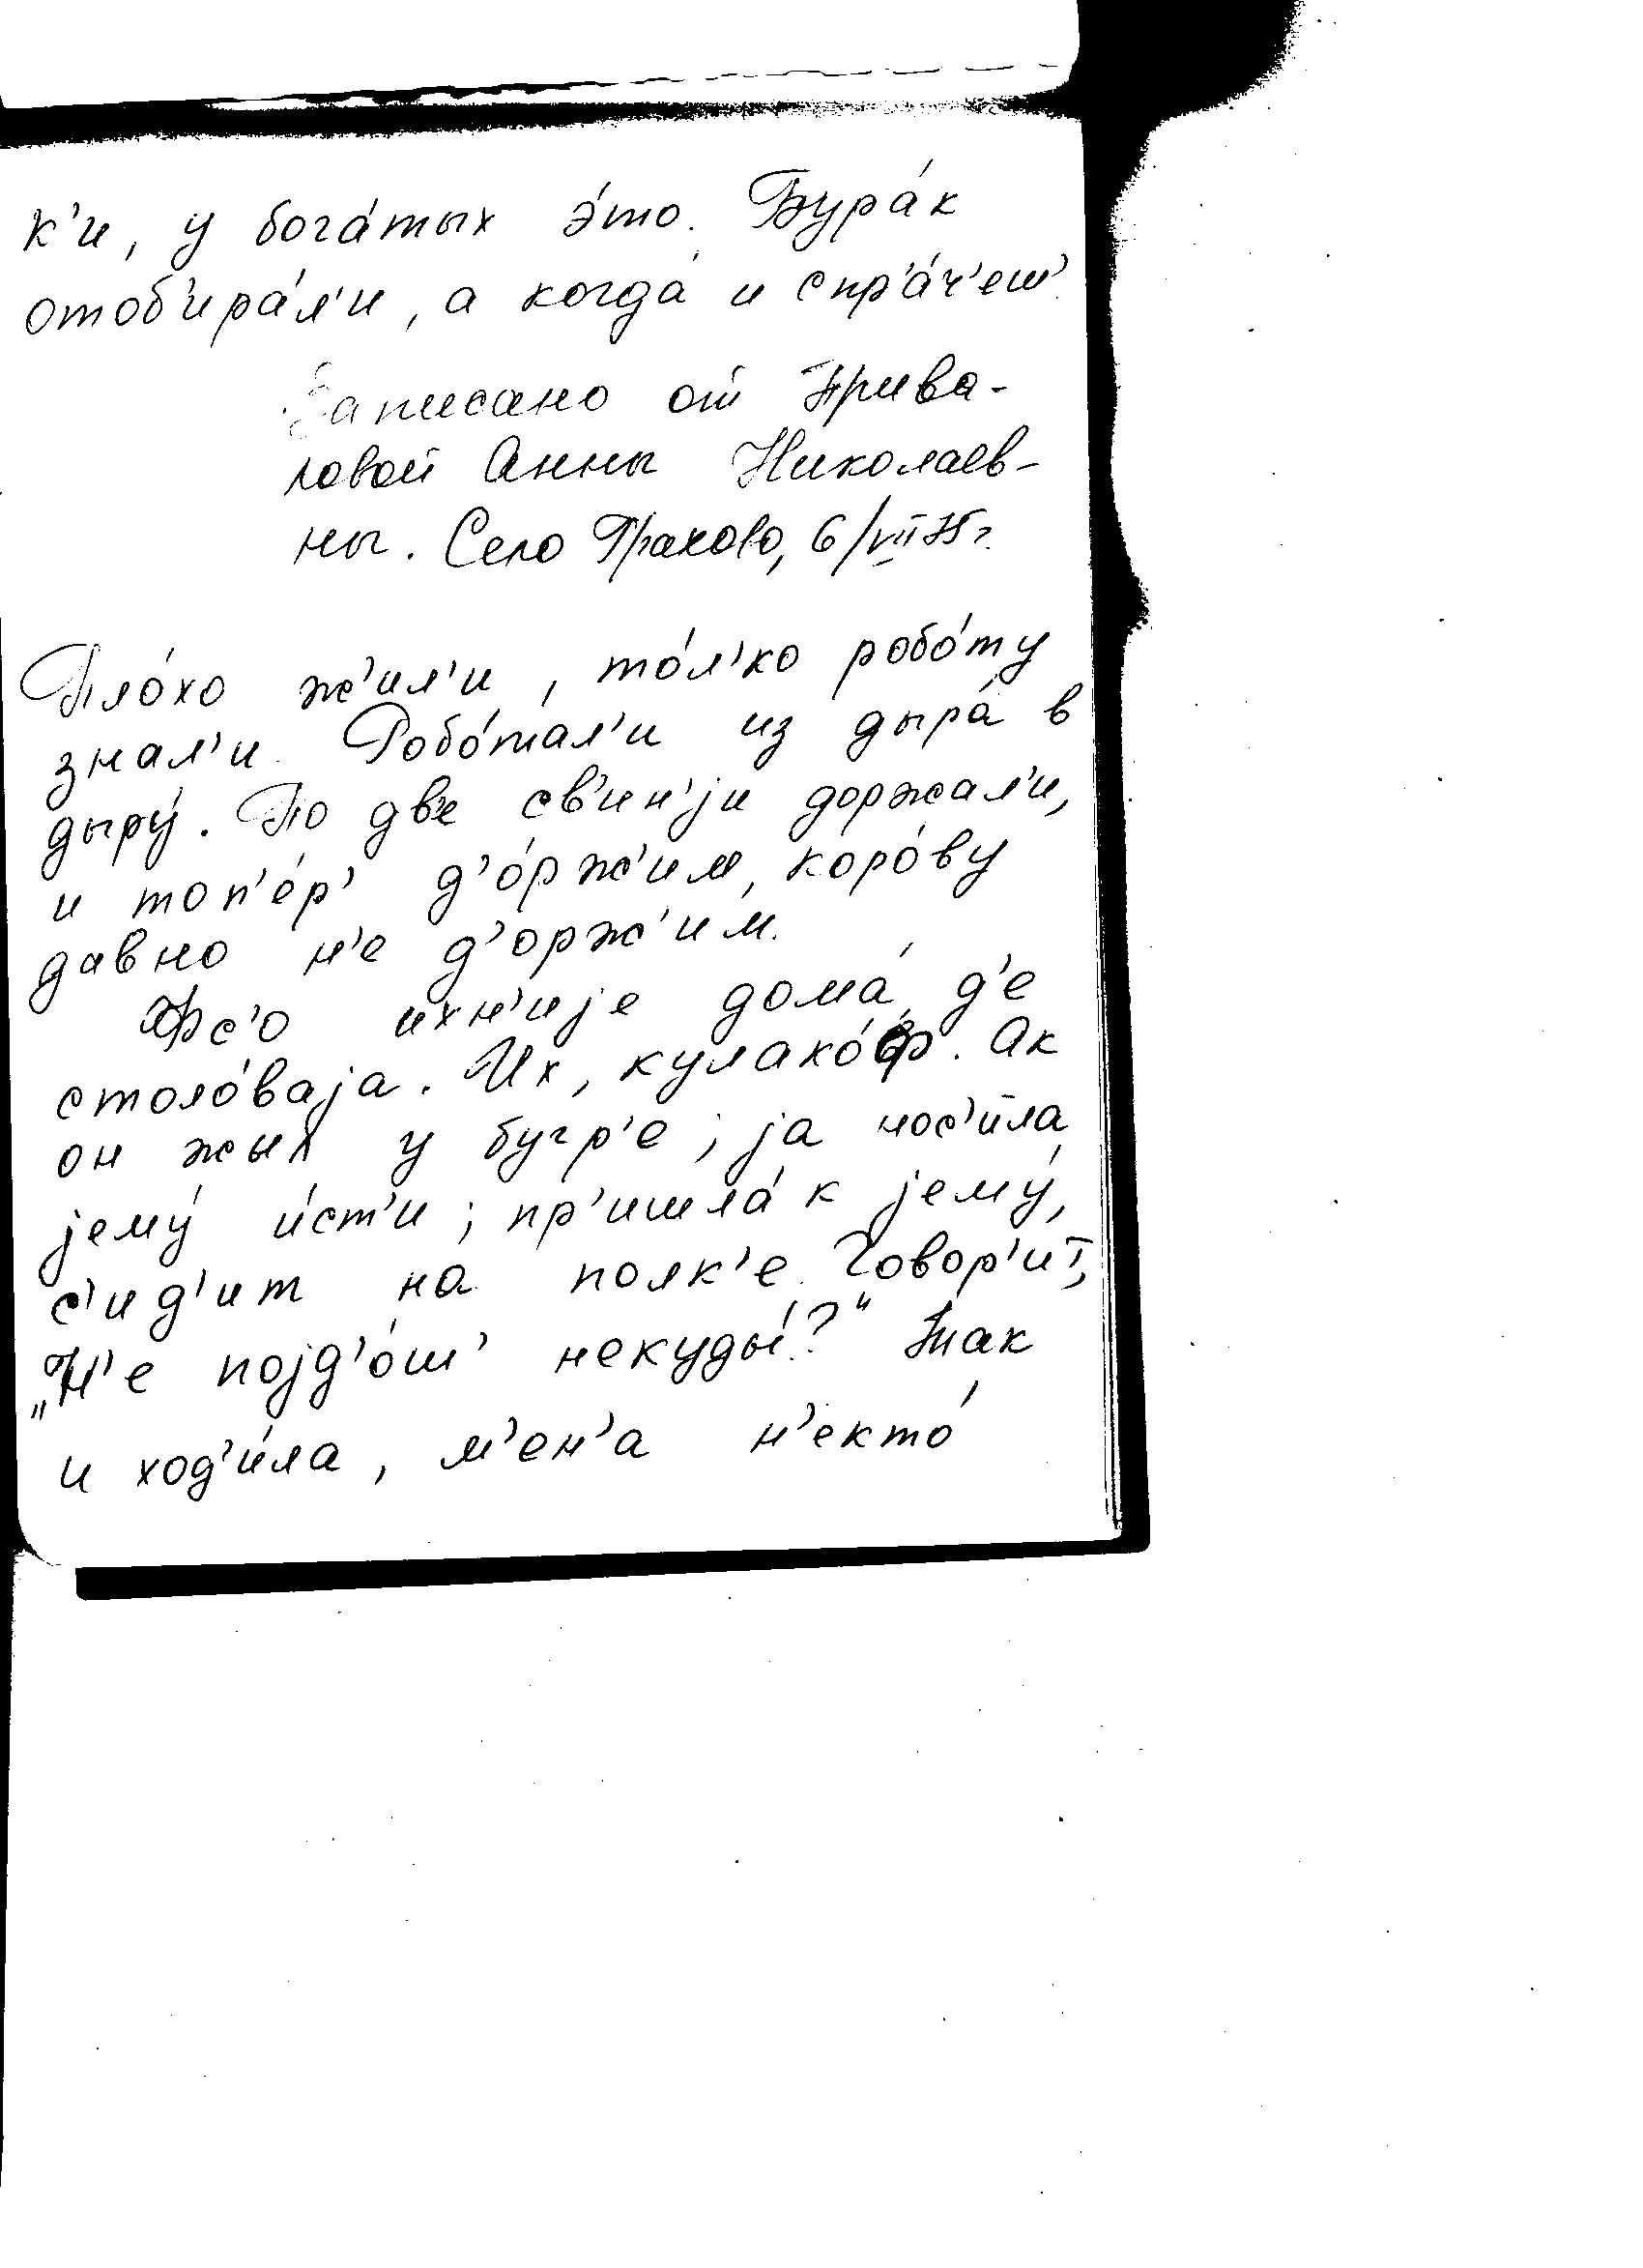 к'и, у бога́тых э́то. Бура́к
отоб'ира́л'и, а когда́ и спр'а́ч'еш'.
Записано от Прива-
ловой Анны Николаев-
ны. Село Грахово, 6/VII 75 г.
Пло́хо ж'ил'и, то́л'ко робо́ту
знал'и. Робо́тал'и из дыра́ в
дыру́. По дв'е св'ин'jи доржал'и,
и топ'е́р' д'о́рж'им, коро́ву
давно н'е д'орж'и́м.
Фс'о ихн'иjе дома́, д'е
столо́ваjа. Их, кулако́ф. Ак
он жыл у бугр'е; jа нос'и́ла
jему́ и́ст'и; пр'ишла́ к jему́,
с'ид'ит на полк'е. Говор'ит,
„Н'е поjд'о́ш' некуды́?“ Так
и ход'и́ла, м'ен'а н'екто́